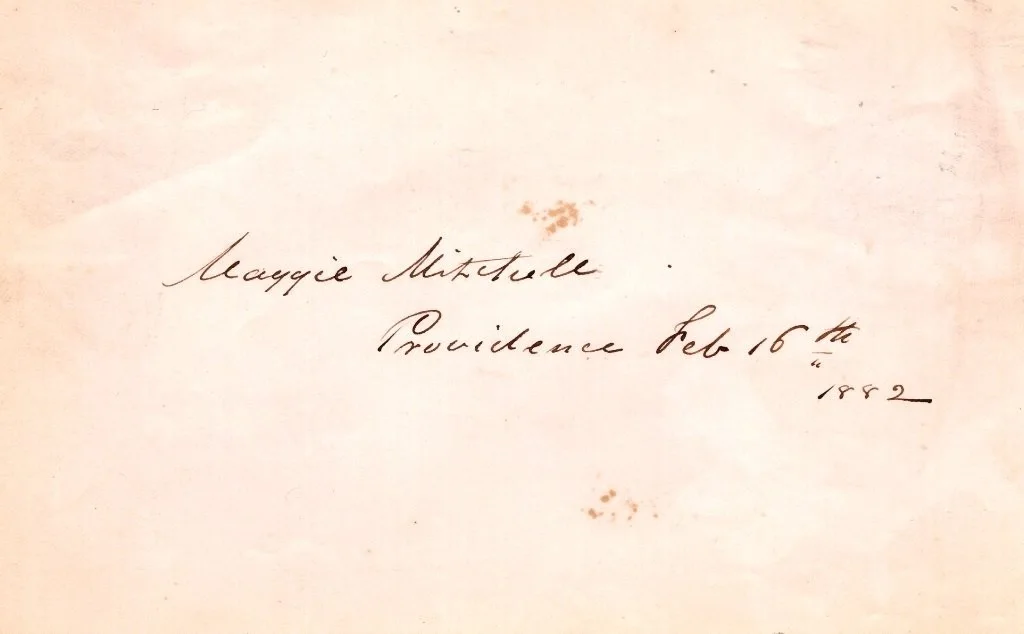 Maggie Mitchell
Providence Feb 16th
1882